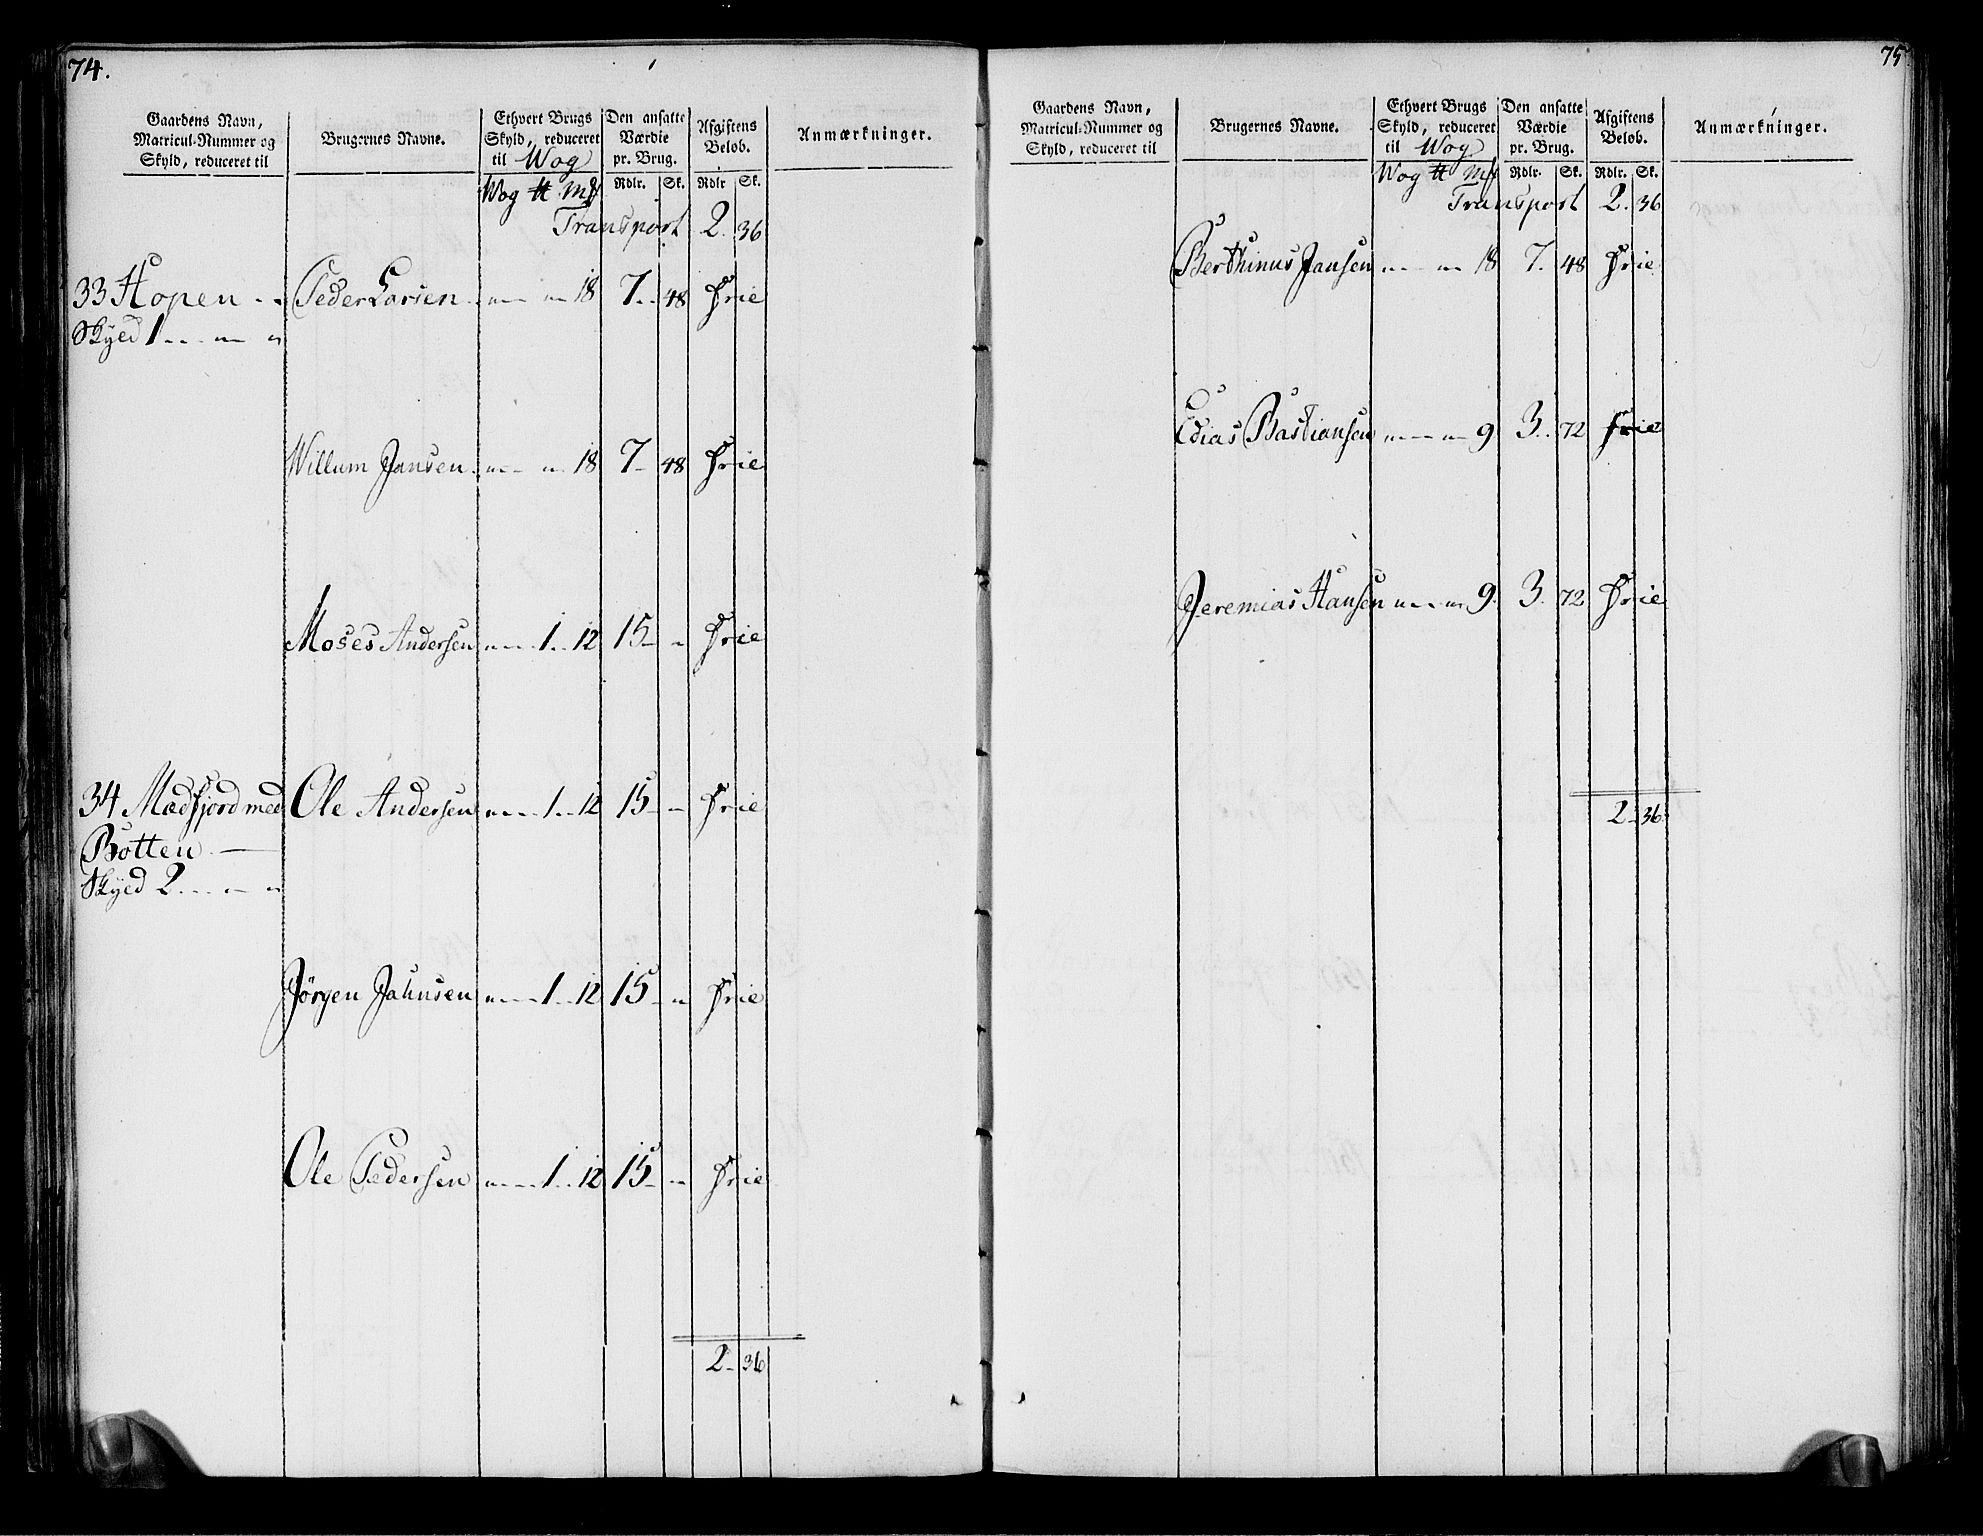 74.
Gaardens Navn, Matricul-Nummer og Skyld, reduceret til
Brugernes Navne.
Ethvert Brugs Skyld, reduceret til Wog
Den ansatte Værdie pr. Brug.
Afgiftens Belob.
Anmærkninger.
Wog ℔ Mk Rdlr. Sk. Rdlr Sk.
Transport 2. 36
33 Hopen - - Peder Larsen 18 7 - 48 Frie
Skyld 1
Willum Jansen 18 7 - 48 Frie
Moses Andersen 1 - 12 15 - Frie
34 Madfjord med Ole Andersen 1 - 12 15 - Frie
Botten
Skyld 2
Jörgen Jahnsen 1 - 12 15 - Frie
Ole Pedersen 1 - 12 15 - Frie
2 - 36
75
Gaardens Navn, Matricul-Nummer og Skyld, reduceret til
Brugernes Navne.
Ethvert Brugs Skyld, reduceret til Wog
Den ansatte Værdie pr. Brug.
Afgiftens Belob.
Anmærkninger.
Wog ℔ Mk Rdlr. Sk. Rdlr. Sk.
Transport 2. 36
Berthinus Jansen 18 7. 48 Frie
Edias Bastiansen 9 3. 72 Frie
Jeremias Hansen 9. 3. 72 Frie
2 - 36